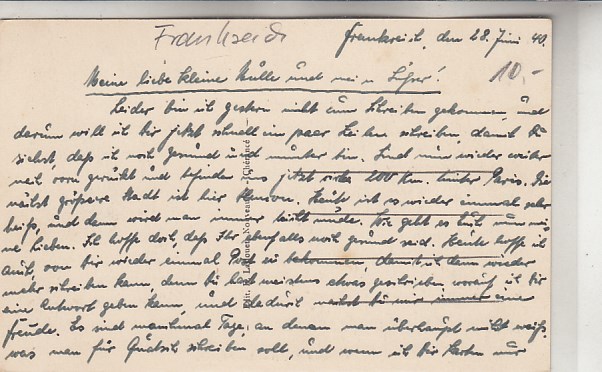 Frankreich
Frankreich, den 28. Juni 40.
10,-
Meine liebe kleine Mülle und mein
Leider bin ich gestern nicht zum Schreiben gekommen, und
darum will ich Dir jetzt schnell ein paar Zeilen schreiben, damit Du
siehst, daß ich noch gesund und munter bin. Sind nun wieder weiter
nach vorn gerückt und befinden uns jetzt 200 Km. hinter Paris. Die
nächst größere Stadt ist hier Alencon. Heute ist es wieder einmal sehr
heiß, und dann wird man immer leicht müde. Wie geht es Euch nun mei-
ne Lieben. Ich hoffe doch, daß Ihr ebenfalls noch gesund seid. Heute hoffe ich
auch, von Dir wieder einmal Post zu bekommen, damit ich dann wieder
mehr schreiben kann, denn Du hast meistens etwas geschrieben, worauf ich Dir
eine Antwort geben kann, und dadurch machst Du mir immer eine
Freude. Es sind manchmal Tage, an denen man überhaupt nicht weiß,
was man für Quatsch schreiben soll, und wenn ich Dir Karten nur